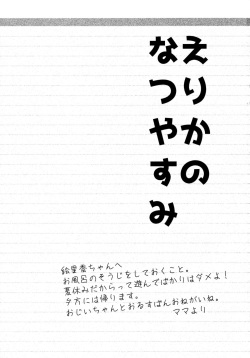 えりかの
なつやすみ
鈴里香ちゃんへ
お風呂のそうじをしておくこと。
夏休みだからって遊んでばかりはダメよ!
夕方には帰ります。
おじいちゃんとおるすばんおねがいね。
ママより